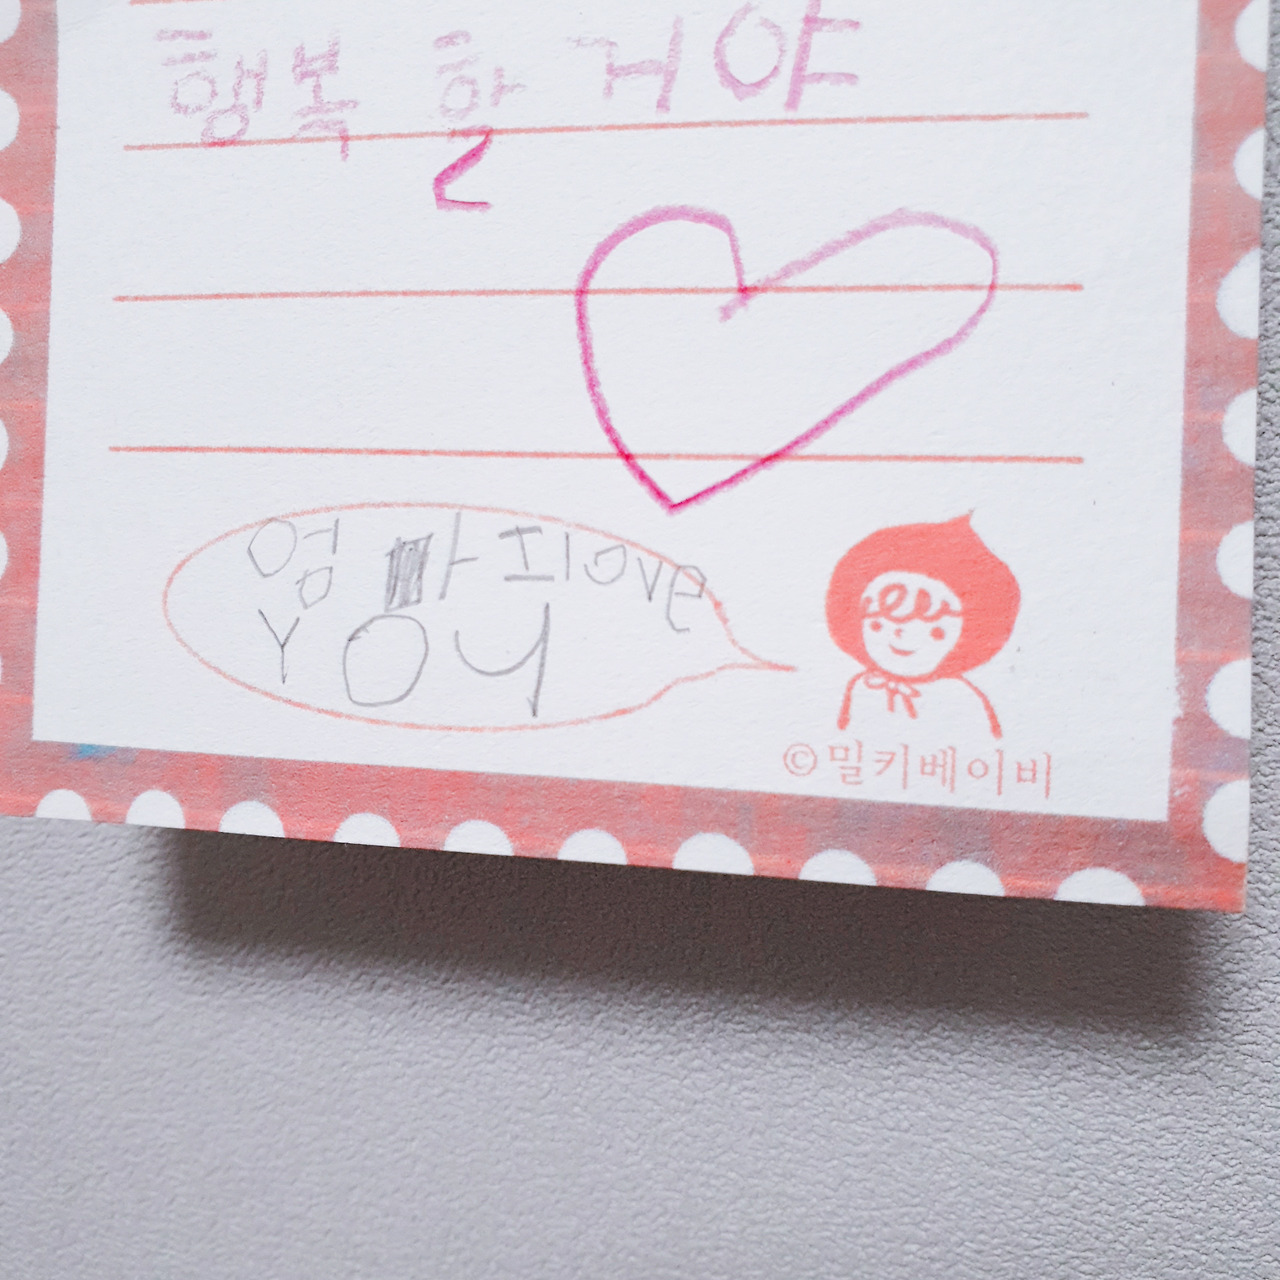 행복 할 거야
엄 빠 I love
YOU
©밀키베이비